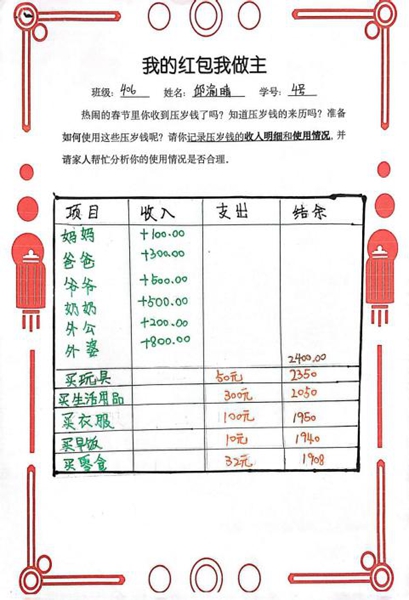 我的红包我做主
班级: 406 姓名: 邱渝晴 学号: 4号
热闹的春节里你收到压岁钱了吗?知道压岁钱的来历吗?准备
如何使用这些压岁钱呢?请你记录压岁钱的收入明细和使用情况,并
请家人帮忙分析你的使用情况是否合理。
项目 收入 支出 结余
妈妈 +100.00
爸爸 +300.00
爷爷 +500.00
奶奶 +500.00
外公 +200.00
外婆 +800.00
2400.00
买玩具 50元 2350
买生活用品 300元 2050
买衣服 100元 1950
买早饭 10元 1940
买零食 32元 1908